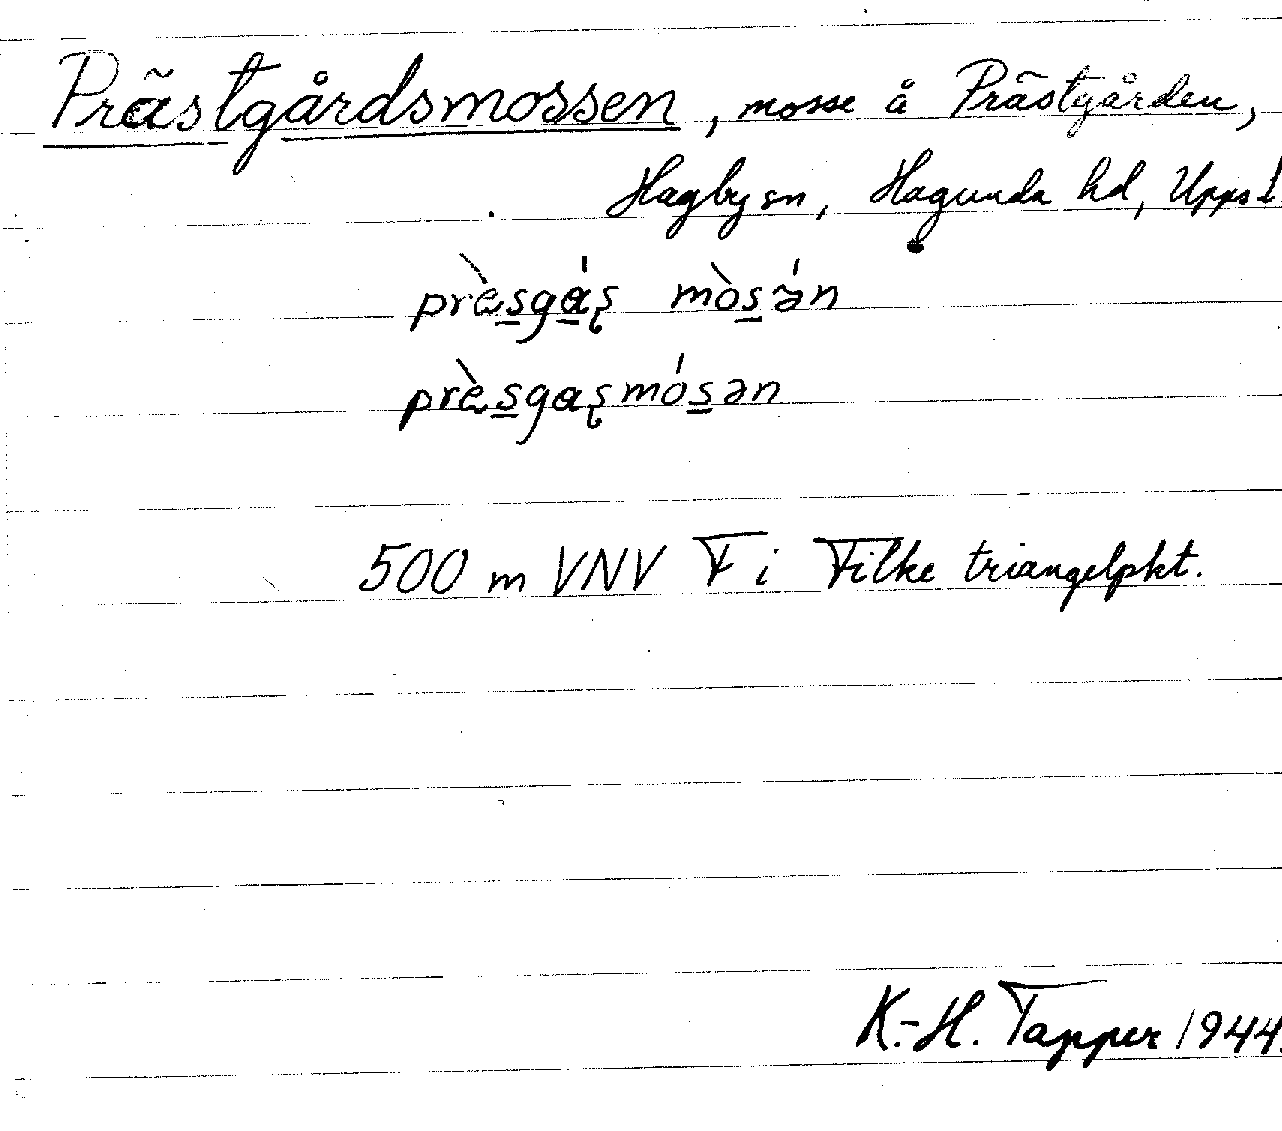 Prästgårdsmossen, mosse å Prästgården,
Hagby sn, Hagunda hd, Upps l.
prὲsgás̨ mòsə́n
prὲsgas̨mósən
500 m VNV F i Filke triangelpkt.
K.-H. Tapper 1944.